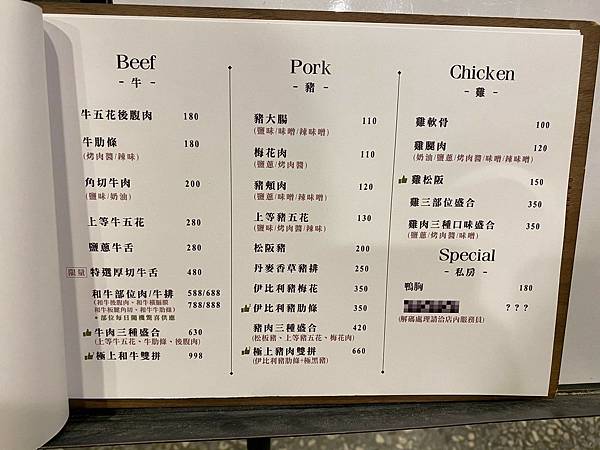 Beef
- 牛 -
牛五花後腹肉 180
牛肋條 180
(烤肉醬/辣味)
角切牛肉 200
(鹽味/奶油)
上等牛五花 280
鹽蔥牛舌 280
限量 特選厚切牛舌 480
和牛部位肉/牛排 588/688
788/888
*部位每日隨機驚喜供應
牛肉三種盛合 630
(上等牛五花、牛肋條、後腹肉)
極上和牛雙拼 998
Pork
- 豬 -
豬大腸 110
(鹽味/味噌/辣味噌)
梅花肉 110
(鹽蔥/烤肉醬)
豬頰肉 120
(鹽蔥/味噌/辣味噌)
上等豬五花 130
(鹽味/烤肉醬/辣味)
松阪豬 200
丹麥香草豬排 250
伊比利豬梅花 350
伊比利豬肋條 350
豬肉三種盛合 420
(松板豬、上等豬五花、梅花肉)
極上豬肉雙拼 660
(伊比利豬肋條+極黑豬)
Chicken
- 雞 -
雞軟骨 100
雞腿肉 120
(奶油/鹽蔥/烤肉醬/味噌/辣味噌)
雞松阪 150
雞三部位盛合 350
雞肉三種口味盛合 350
(鹽蔥/烤肉醬/味噌)
Special
- 私房 -
鴨胸 180
???
(解碼處理請洽店內服務員)